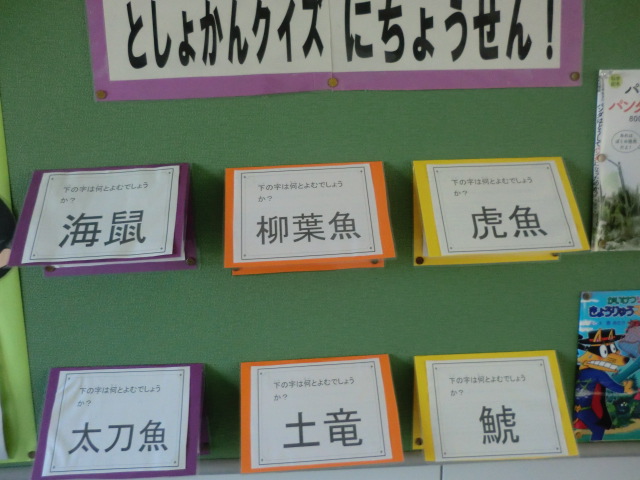 としょかんクイズ にちょうせん！
下の字は何とよむでしょう
か？
海鼠
下の字は何とよむでしょう
か？
柳葉魚
下の字は何とよむでしょう
か？
虎魚
下の字は何とよむでしょう
か？
太刀魚
下の字は何とよむでしょう
か？
土竜
下の字は何とよむでしょう
か？
鯱
かいけつゾ
きょうりゅう